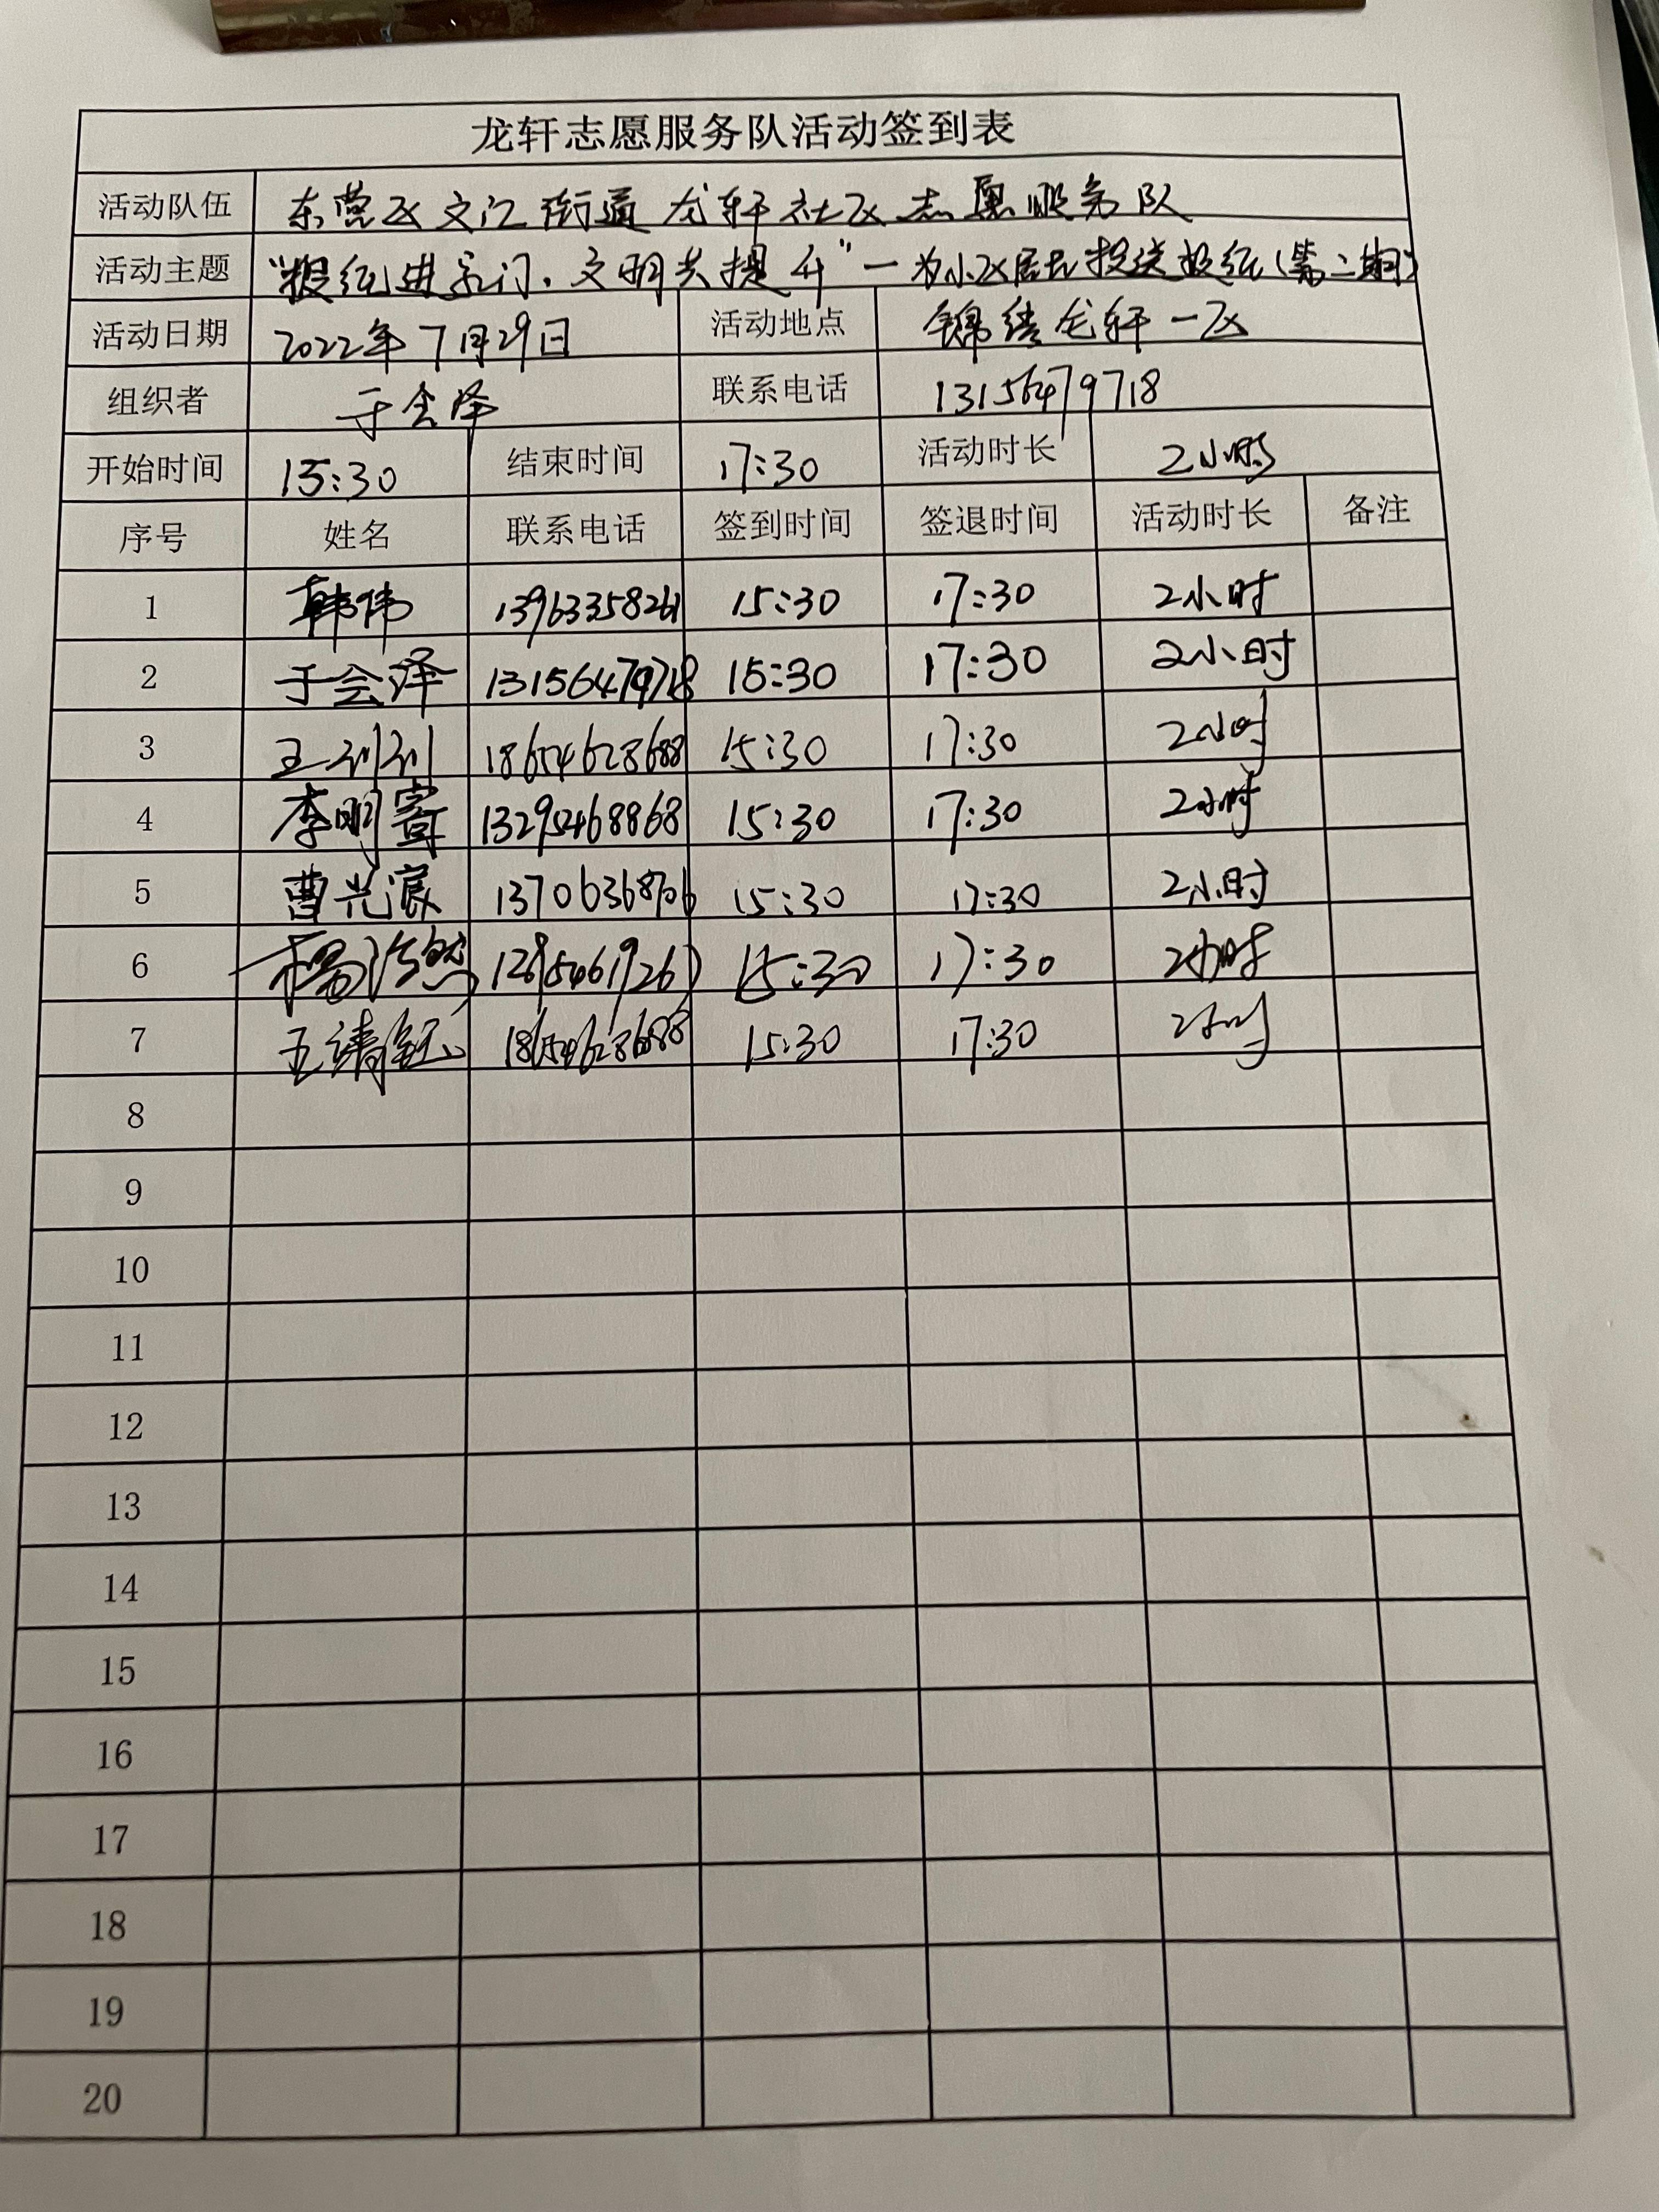 龙轩志愿服务队活动签到表
活动队伍 东营区文汇街道龙轩社区志愿服务队
活动主题 "报纸进家门、文明共提升"—为小区居民投送报纸(第二期)
活动日期 2022年7月29日 活动地点 锦绣龙轩一区
组织者 于会泽 联系电话 13156479718
开始时间 15:30 结束时间 17:30 活动时长 2小时
序号 姓名 联系电话 签到时间 签退时间 活动时长 备注
1 韩伟 13963358261 15:30 17:30 2小时
2 于会泽 13156479718 15:30 17:30 2小时
3 18654628688 15:30 17:30 2小时
4 李明 13295468868 15:30 17:30 2小时
5 曹兴 13706368706 15:30 17:30 2小时
6 杨浩然 15:30 17:30 2小时
7 王靖钰 18654628688 15:30 17:30 2小时
8
9
10
11
12
13
14
15
16
17
18
19
20